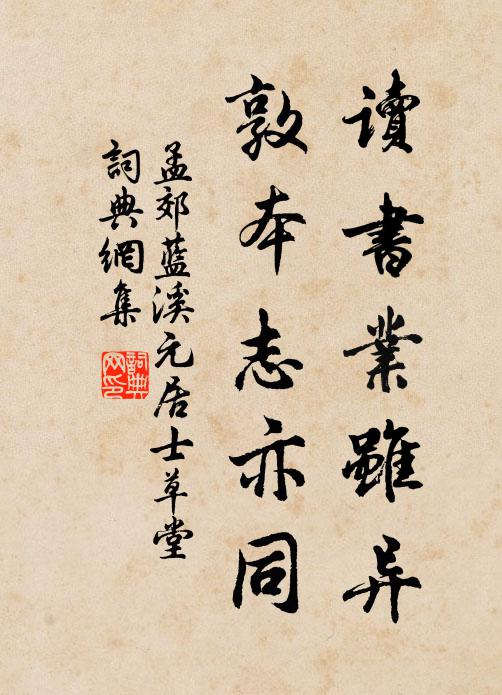 讀書業雖异
敦本志亦同
孟郊藍溪元居士草堂
詞典網集
詞典網印